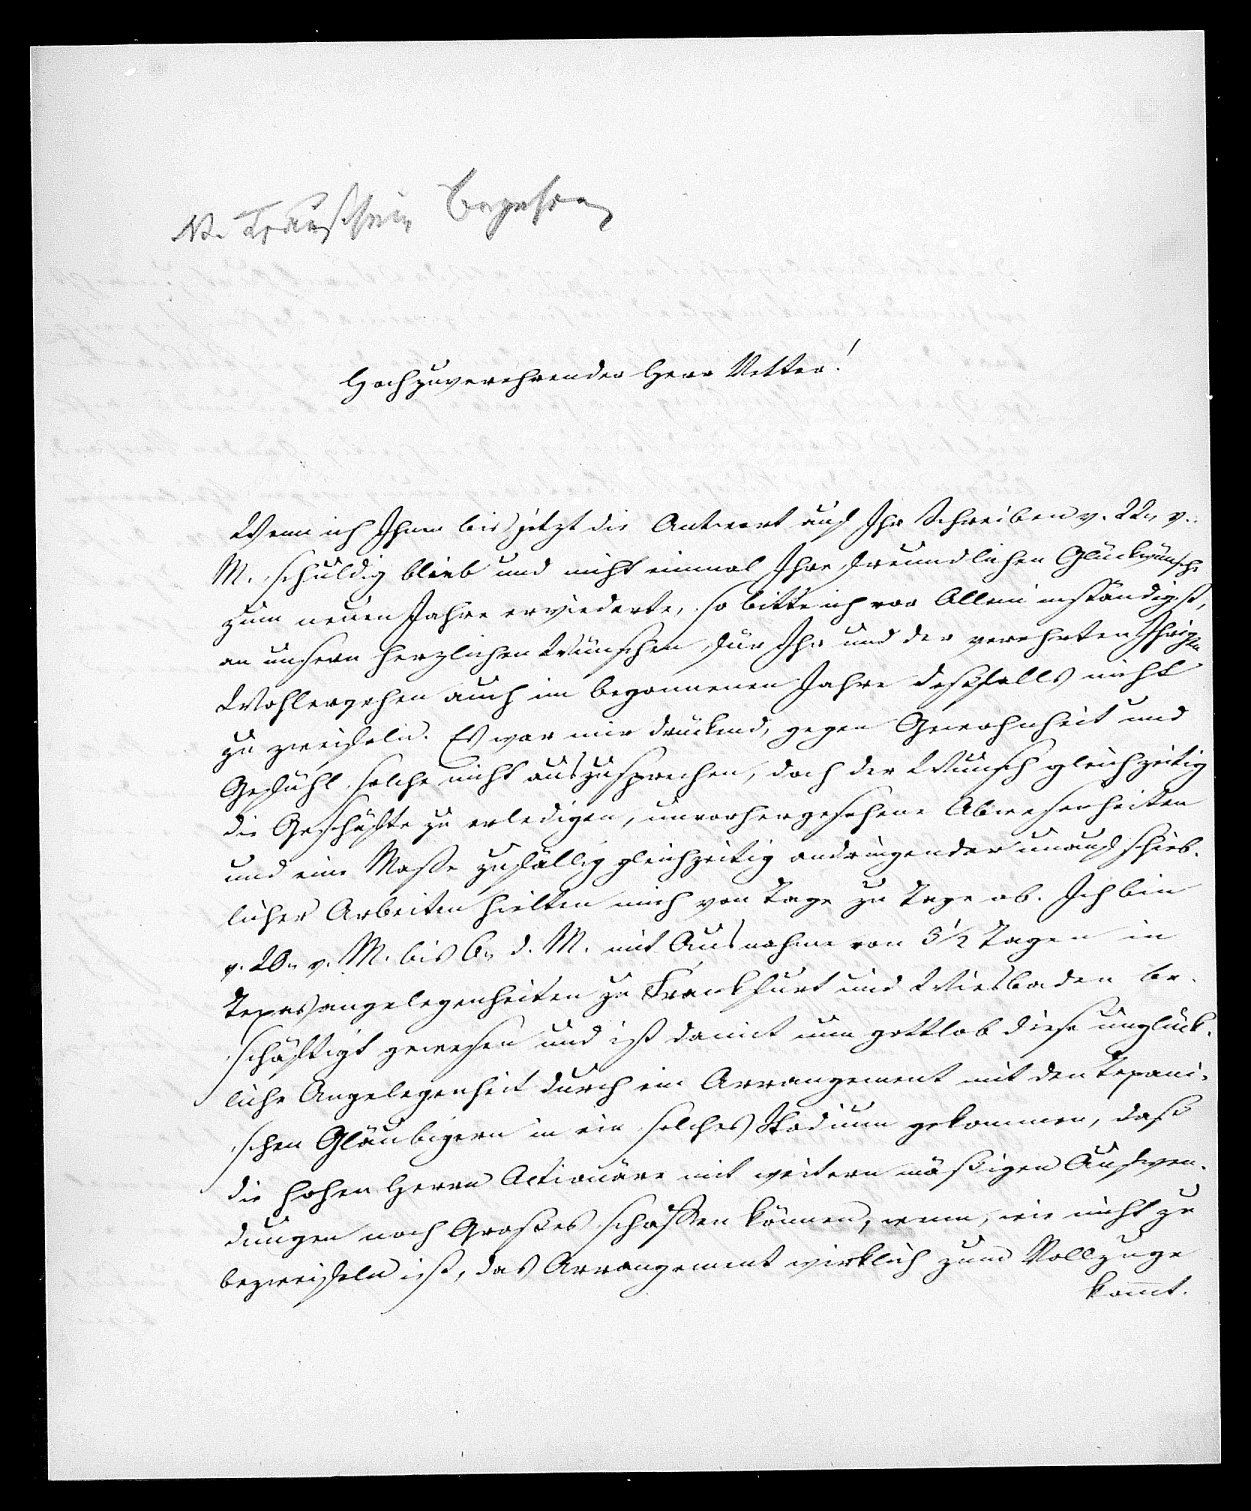 Hochzuverehrender Herr Vetter!
Wenn ich Ihnen bis jetzt die Antwort auf Ihr Schreiben v. 22n v.
M. schuldig blieb und nicht einmal Ihre freundlichen Glückwünsche
zum neuen Jahre erwiederte, so bitte ich vor Allem inständigst,
an unsern herzlichen Wünschen für Ihr und der verehrten Ihrigen
Wohlergehen auch im begonnenen Jahre desfalls nicht
zu zweifeln. Es war mir drückend, gegen Gewohnheit und
Gefühl solche nicht auszusprechen, doch der Wunsch gleichzeitig
die Geschäfte zu erledigen, unvorhergesehene Abwesenheiten
und eine Masse zufällig gleichzeitig andringender unaufschieb-
licher Arbeiten hielten mich von Tage zu Tage ab. Ich bin
v. 20n v. M. bis 6n d. M. mit Ausnahme von 5 1/2 Tagen in
Texasangelegenheiten zu Frankfurt und Wiesbaden be-
schäftigt gewesen und ist damit nun gottlob diese unglück-
liche Angelegenheit durch ein Arrangement mit den Texani-
schen Gläubigern in ein solches Stadium gekommen, daß
die hohen Herrn Actionäre mit weitern mäßigen Aufwen-
dungen noch Großes schaffen können, wenn, wie nicht zu
bezweifeln ist, das Arrangement wirklich zum Vollzuge
kommt.